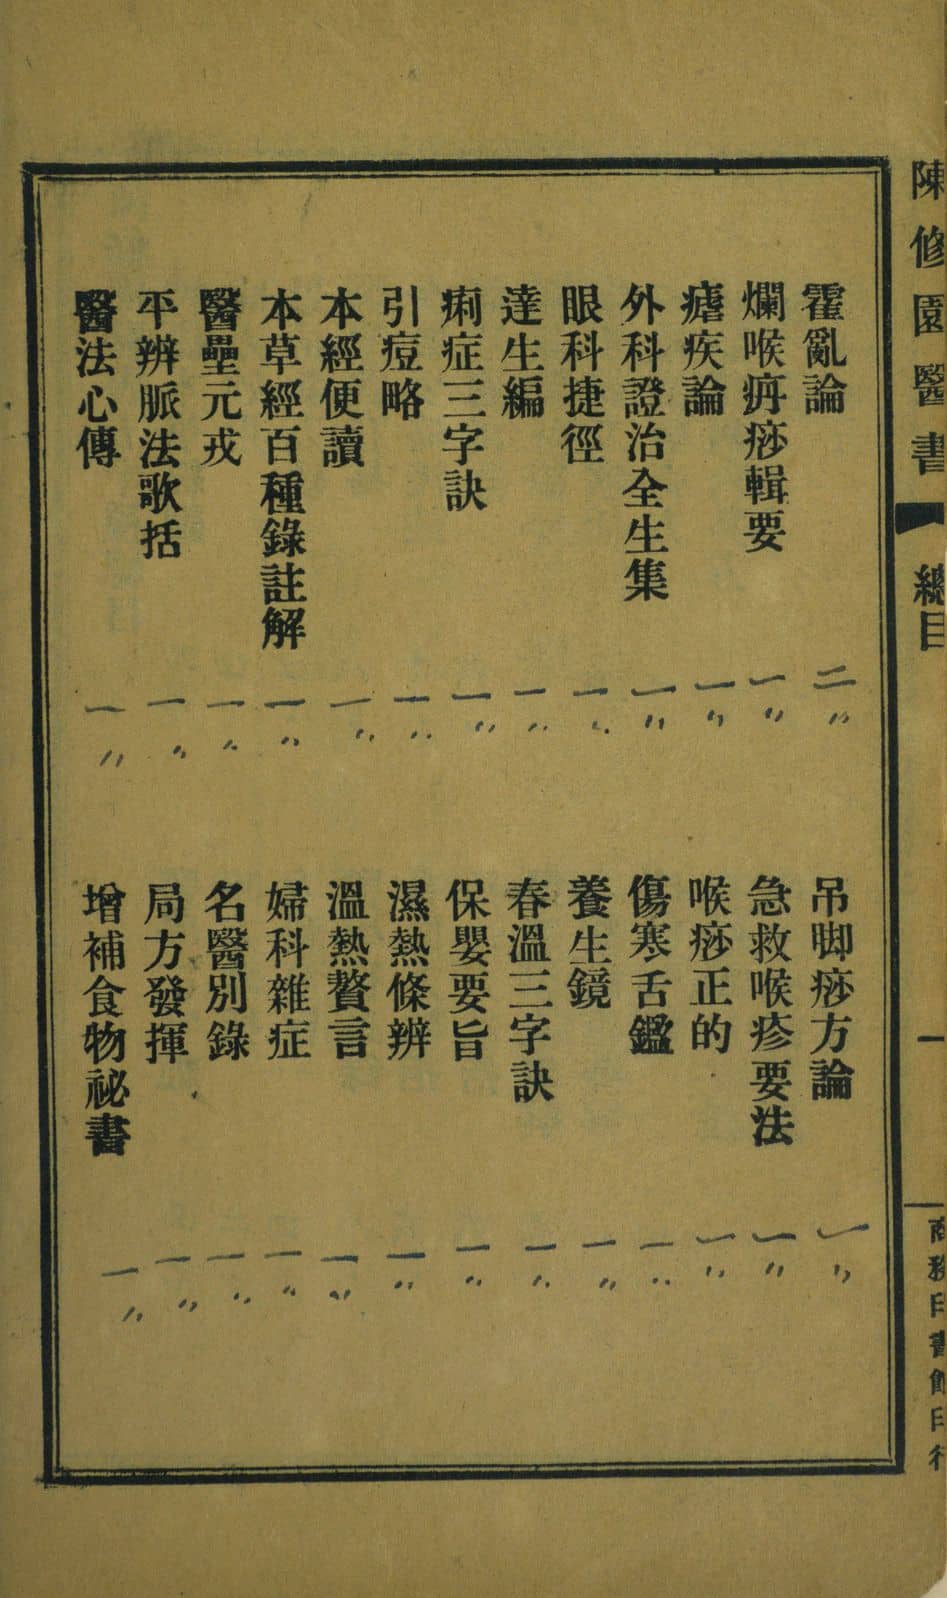 陳修園醫書
總目
一
商務印書館印行
霍亂論
二〃
吊脚痧方論
一〃
爛喉丹痧輯要
一〃
急救喉疹要法
一〃
瘧疾論
一〃
喉痧正的
一〃
外科證治全生集
一〃
傷寒舌鑑
一〃
眼科捷徑
一〃
養生鏡
一〃
達生編
一〃
春溫三字訣
一〃
痢症三字訣
一〃
保嬰要旨
一〃
引痘略
一〃
濕熱條辨
一〃
本經便讀
一〃
溫熱贅言
一〃
本草經百種錄註解
一〃
婦科雜症
一〃
醫壘元戎
一〃
名醫別錄
一〃
平辨脈法歌括
一〃
局方發揮
一〃
醫法心傳
一〃
增補食物祕書
一〃